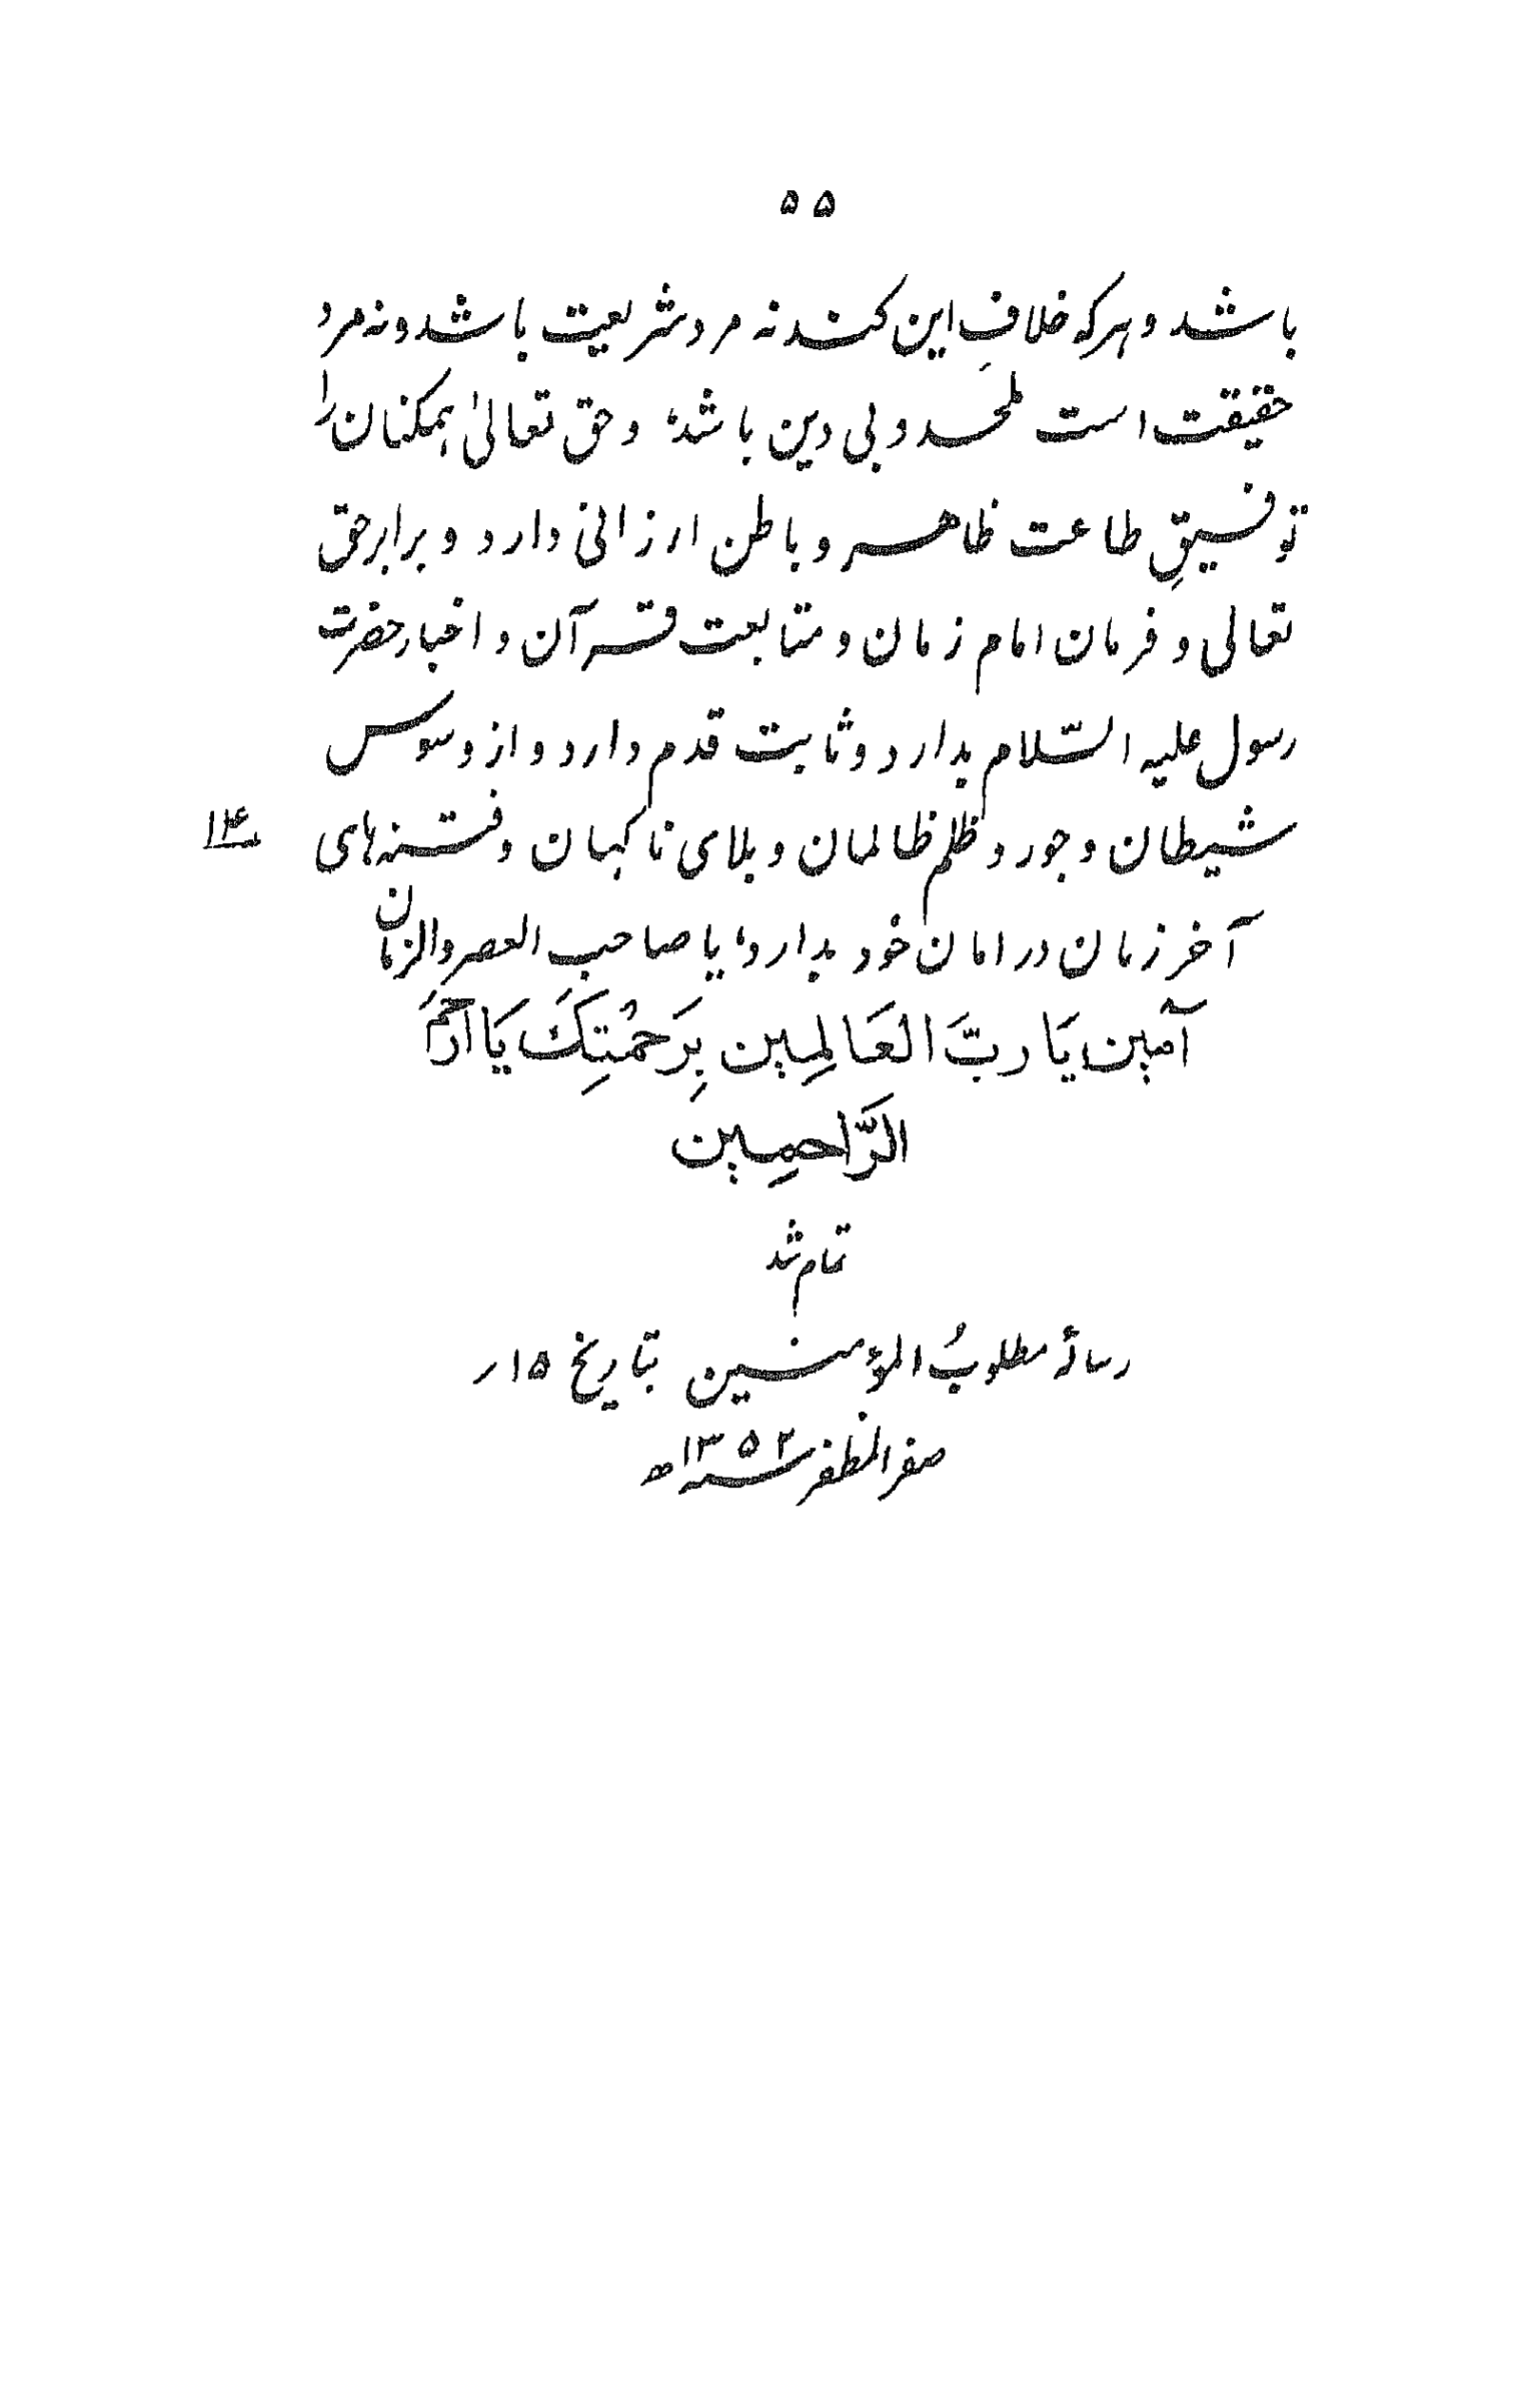 ۵۵
باشد و هرکه خلافِ این کند نه مرد شریعت باشد و نه مرد
حقیقت است ملحد و بی دین باشد؛ و حق تعالیٰ همکنان را
توفیقِ طاعت ظاهر و باطن ارزانی دارد و برابر حق
تعالی و فرمان امام زمان و متابعت قرآن و اخبار حضرت
رسول علیه السّلام بدارد و ثابت قدم دارد و از وسوس
شیطان و جور و ظلم ظالمان و بلای ناگهان و فتنه‌های
۱۴
آخر زمان در امان خود بدارد، یا صاحب العصر والزمان
آمین یَا ربَّ العَالمِین بِرَحمُتِكَ یَا ارْحَمَ
الرَّاحمِین
تمام شد
رسالۂ مطلوبُ المؤمنین بتاریخ ۱۵ر
صفر المظفر سنه ۱۳۵۲ھ